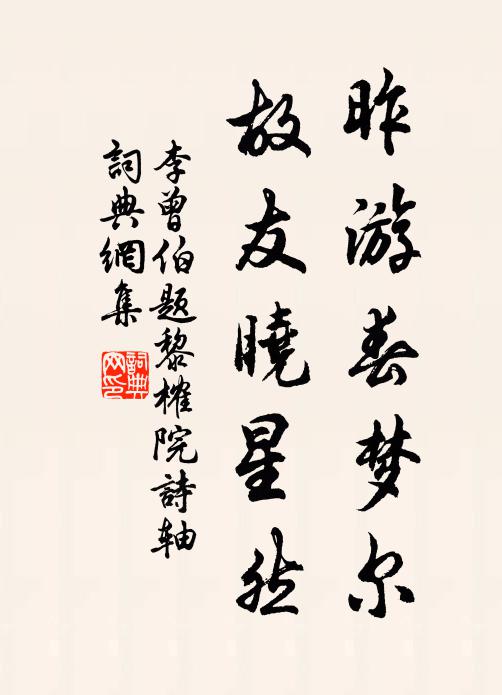 昨游春梦尔
故友曉星然
李曾伯題黎榷院詩轴
詞典網集
詞典网印